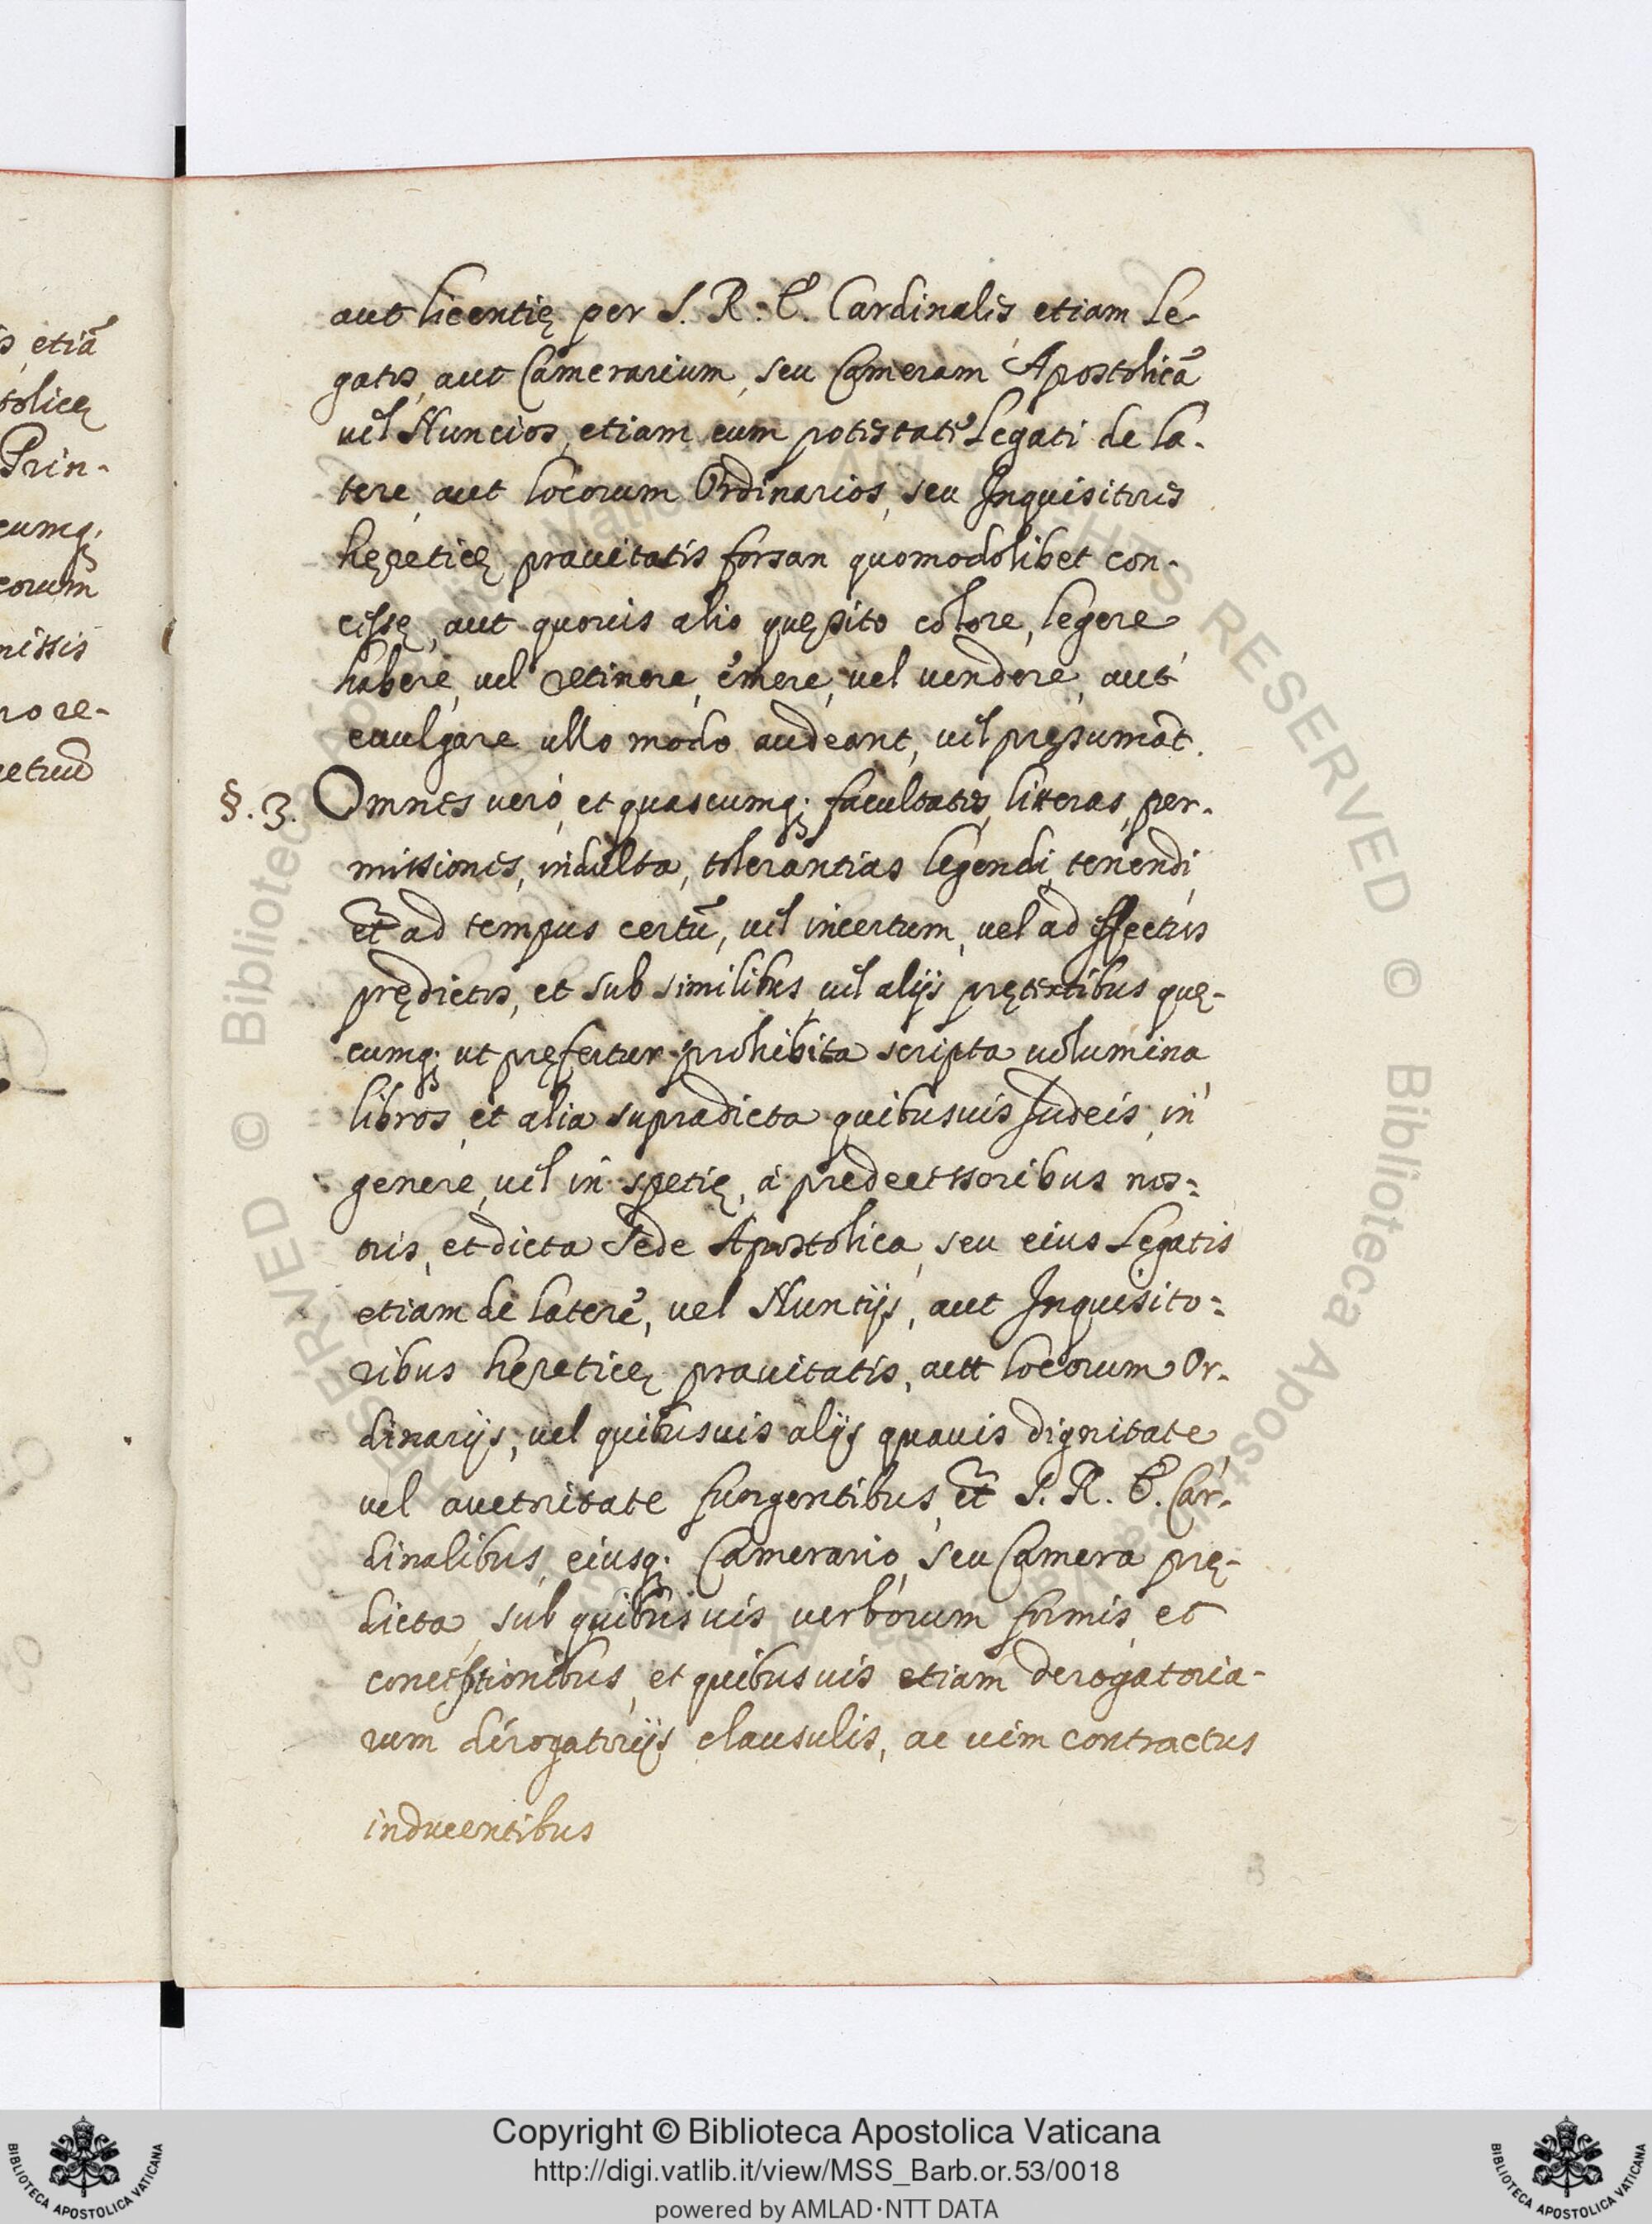 aut licentię per S. R. E. Cardinales etiam Le-
gatos, aut Camerarium, seu Cameram Apostolicã
vel Nuncios, etiam cum potestate Legati de la-
tere, aut locorum Ordinarios, seu Inquisitores
hęreticę prauitatis forsan quomodolibet con-
cessę, aut quouis alio quęsito colore, legere
habere, uel retinere, emere, uel uendere, aut
euulgare ullo modo audeant, uel pręsumãt.
§. 3. Omnes uero, et quascumq; facultates, litteras, per-
missiones, indulta, tolerantias legendi, tenendi
et ad tempus certũ, uel incertum, uel ad effectus
prędictos, et sub similibus, uel alijs prętextibus quę-
cumq; ut pręfertur prohibita scripta uolumina
libros, et alia supradicta quibusuis Judeis, in
genere, uel in spetię, à predecessoribus nos=
tris, et dicta Sede Apostolica, seu eius Legatis
etiam de latere, uel Nuntijs, aut Inquisito=
ribus hęreticę prauitatis, aut locorum Or-
dinarijs, uel quibusuis alijs quauis dignitate
uel auctoritate fungentibus, et S. R. E. Car-
dinalibus, eiusq; Camerario, seu Camera prę-
dicta, sub quibusuis uerborum formis, et
concessionibus, et quibusuis etiam derogatoria-
rum derogatorijs clausulis, ac uim contractus
inducentibus
etiã
tolicę
Prin-
cumq;
eorum
missis
o re-
Copyright © Biblioteca Apostolica Vaticana
http://digi.vatlib.it/view/MSS_Barb.or.53/0018
powered by AMLAD·NTT DATA
BIBLIOTECA APOSTOLICA VATICANA
BIBLIOTECA APOSTOLICA VATICANA